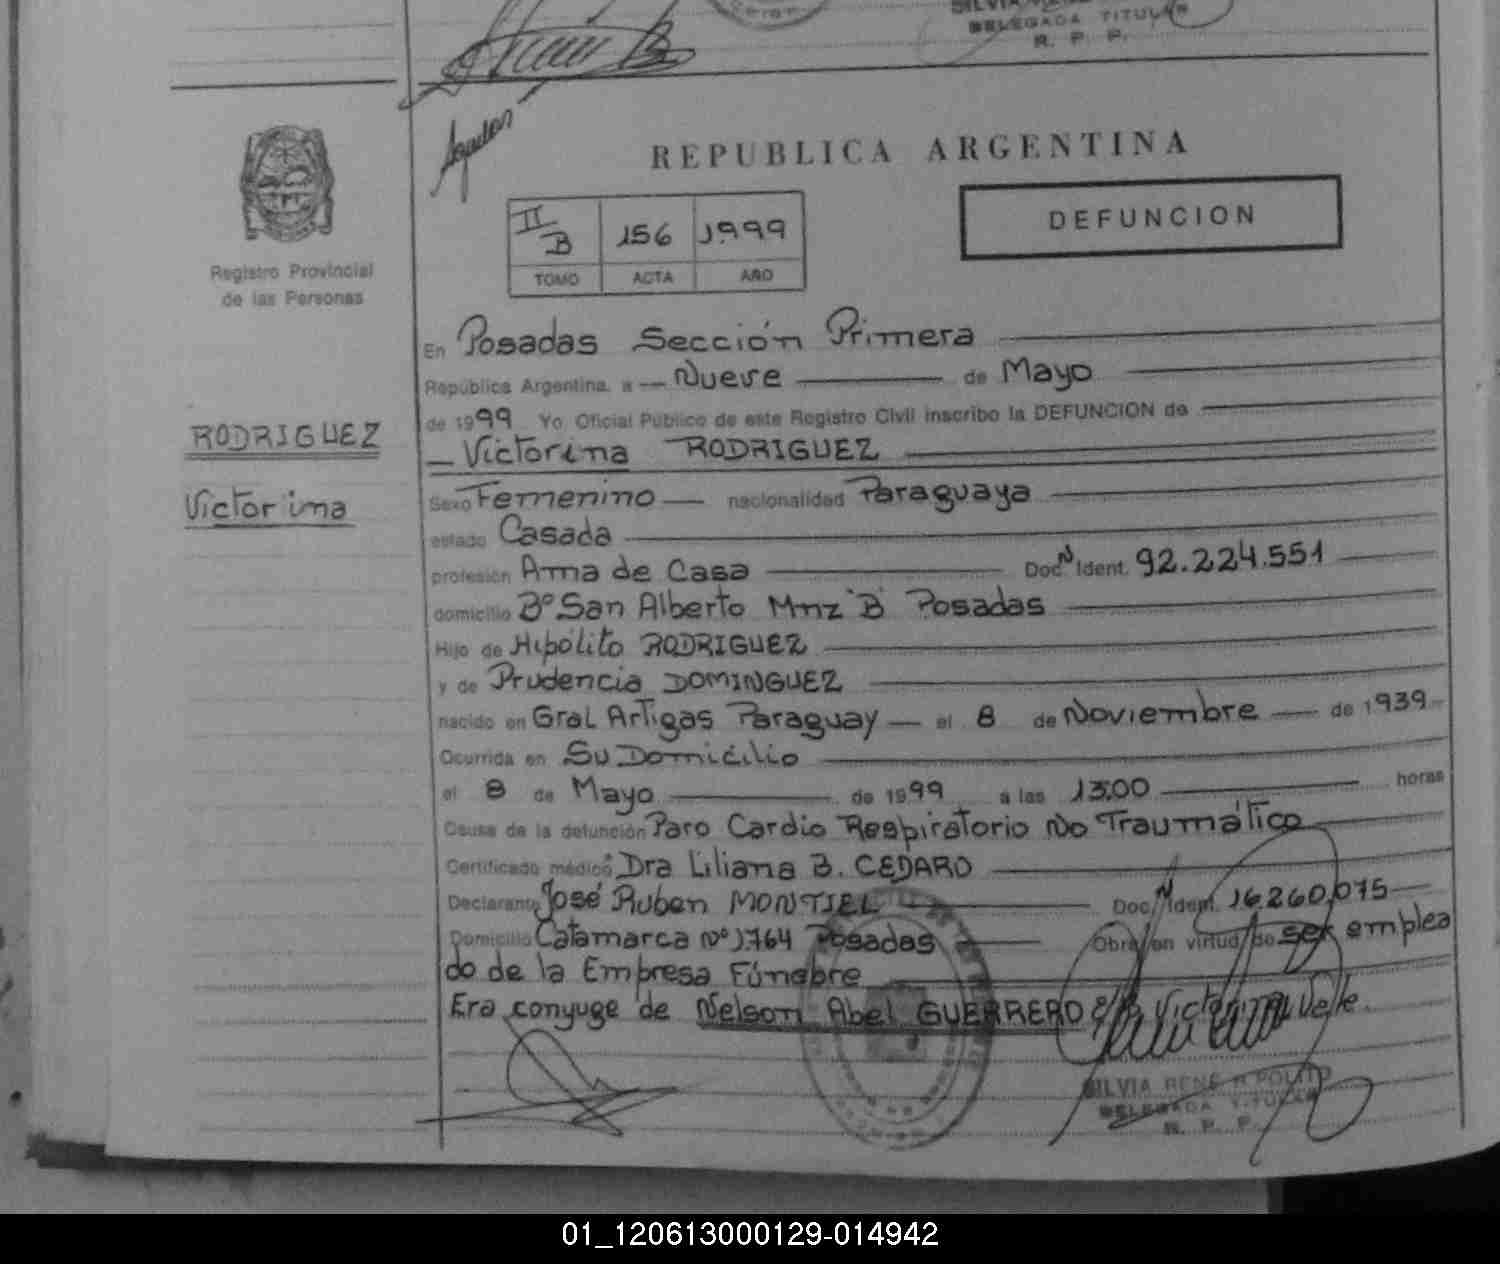 DELEGADA TITULAR
R. P. P.
REPUBLICA ARGENTINA
II B 156 1999
TOMO ACTA AÑO
DEFUNCION
Registro Provincial
de las Personas
RODRIGUEZ
Victorina
En Posadas Sección Primera
República Argentina, a Nueve de Mayo
de 1999 Yo Oficial Público de este Registro Civil inscribo la DEFUNCION de
Victorina RODRIGUEZ
Sexo Femenino nacionalidad Paraguaya
estado Casada
profesión Ama de Casa Doc. N Ident. 92.224.551
domicilio Bº San Alberto Mnz "B" Posadas
Hijo de Hipólito RODRIGUEZ
y de Prudencia DOMINGUEZ
nacido en Gral Artigas Paraguay el 8 de Noviembre de 1939
Ocurrida en Su Domicilio
el 8 de Mayo de 1999 a las 13:00 horas
Causa de la defunción Paro Cardio Respiratorio No Traumático
Certificado médico Dra Liliana B. CEDARO
Declarante José Ruben MONTIEL Doc. N Ident. 16.260.075
Domicilio Catamarca Nº 1764 Posadas Obra en virtud de ser emplea
do de la Empresa Fúnebre
Era conyuge de Nelson Abel GUERRERO Victorina Vale.
SILVIA RENE
DELEGADA TITULAR
R. P. P.
01_120613000129-014942